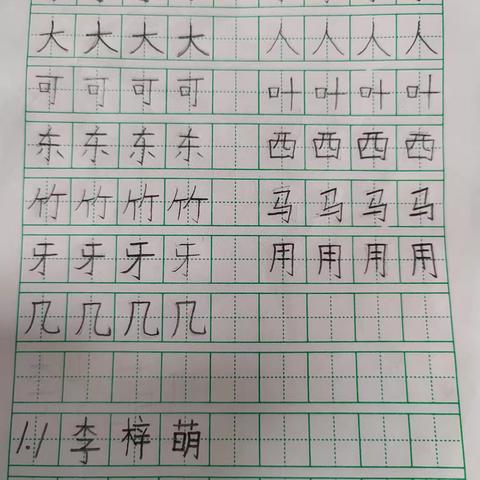 大 大 大 大 人 人 人 人
可 可 可 可 叶 叶 叶 叶
东 东 东 东 西 西 西 西
竹 竹 竹 竹 马 马 马 马
牙 牙 牙 牙 用 用 用 用
几 几 几 几
1.1 李 梓 萌